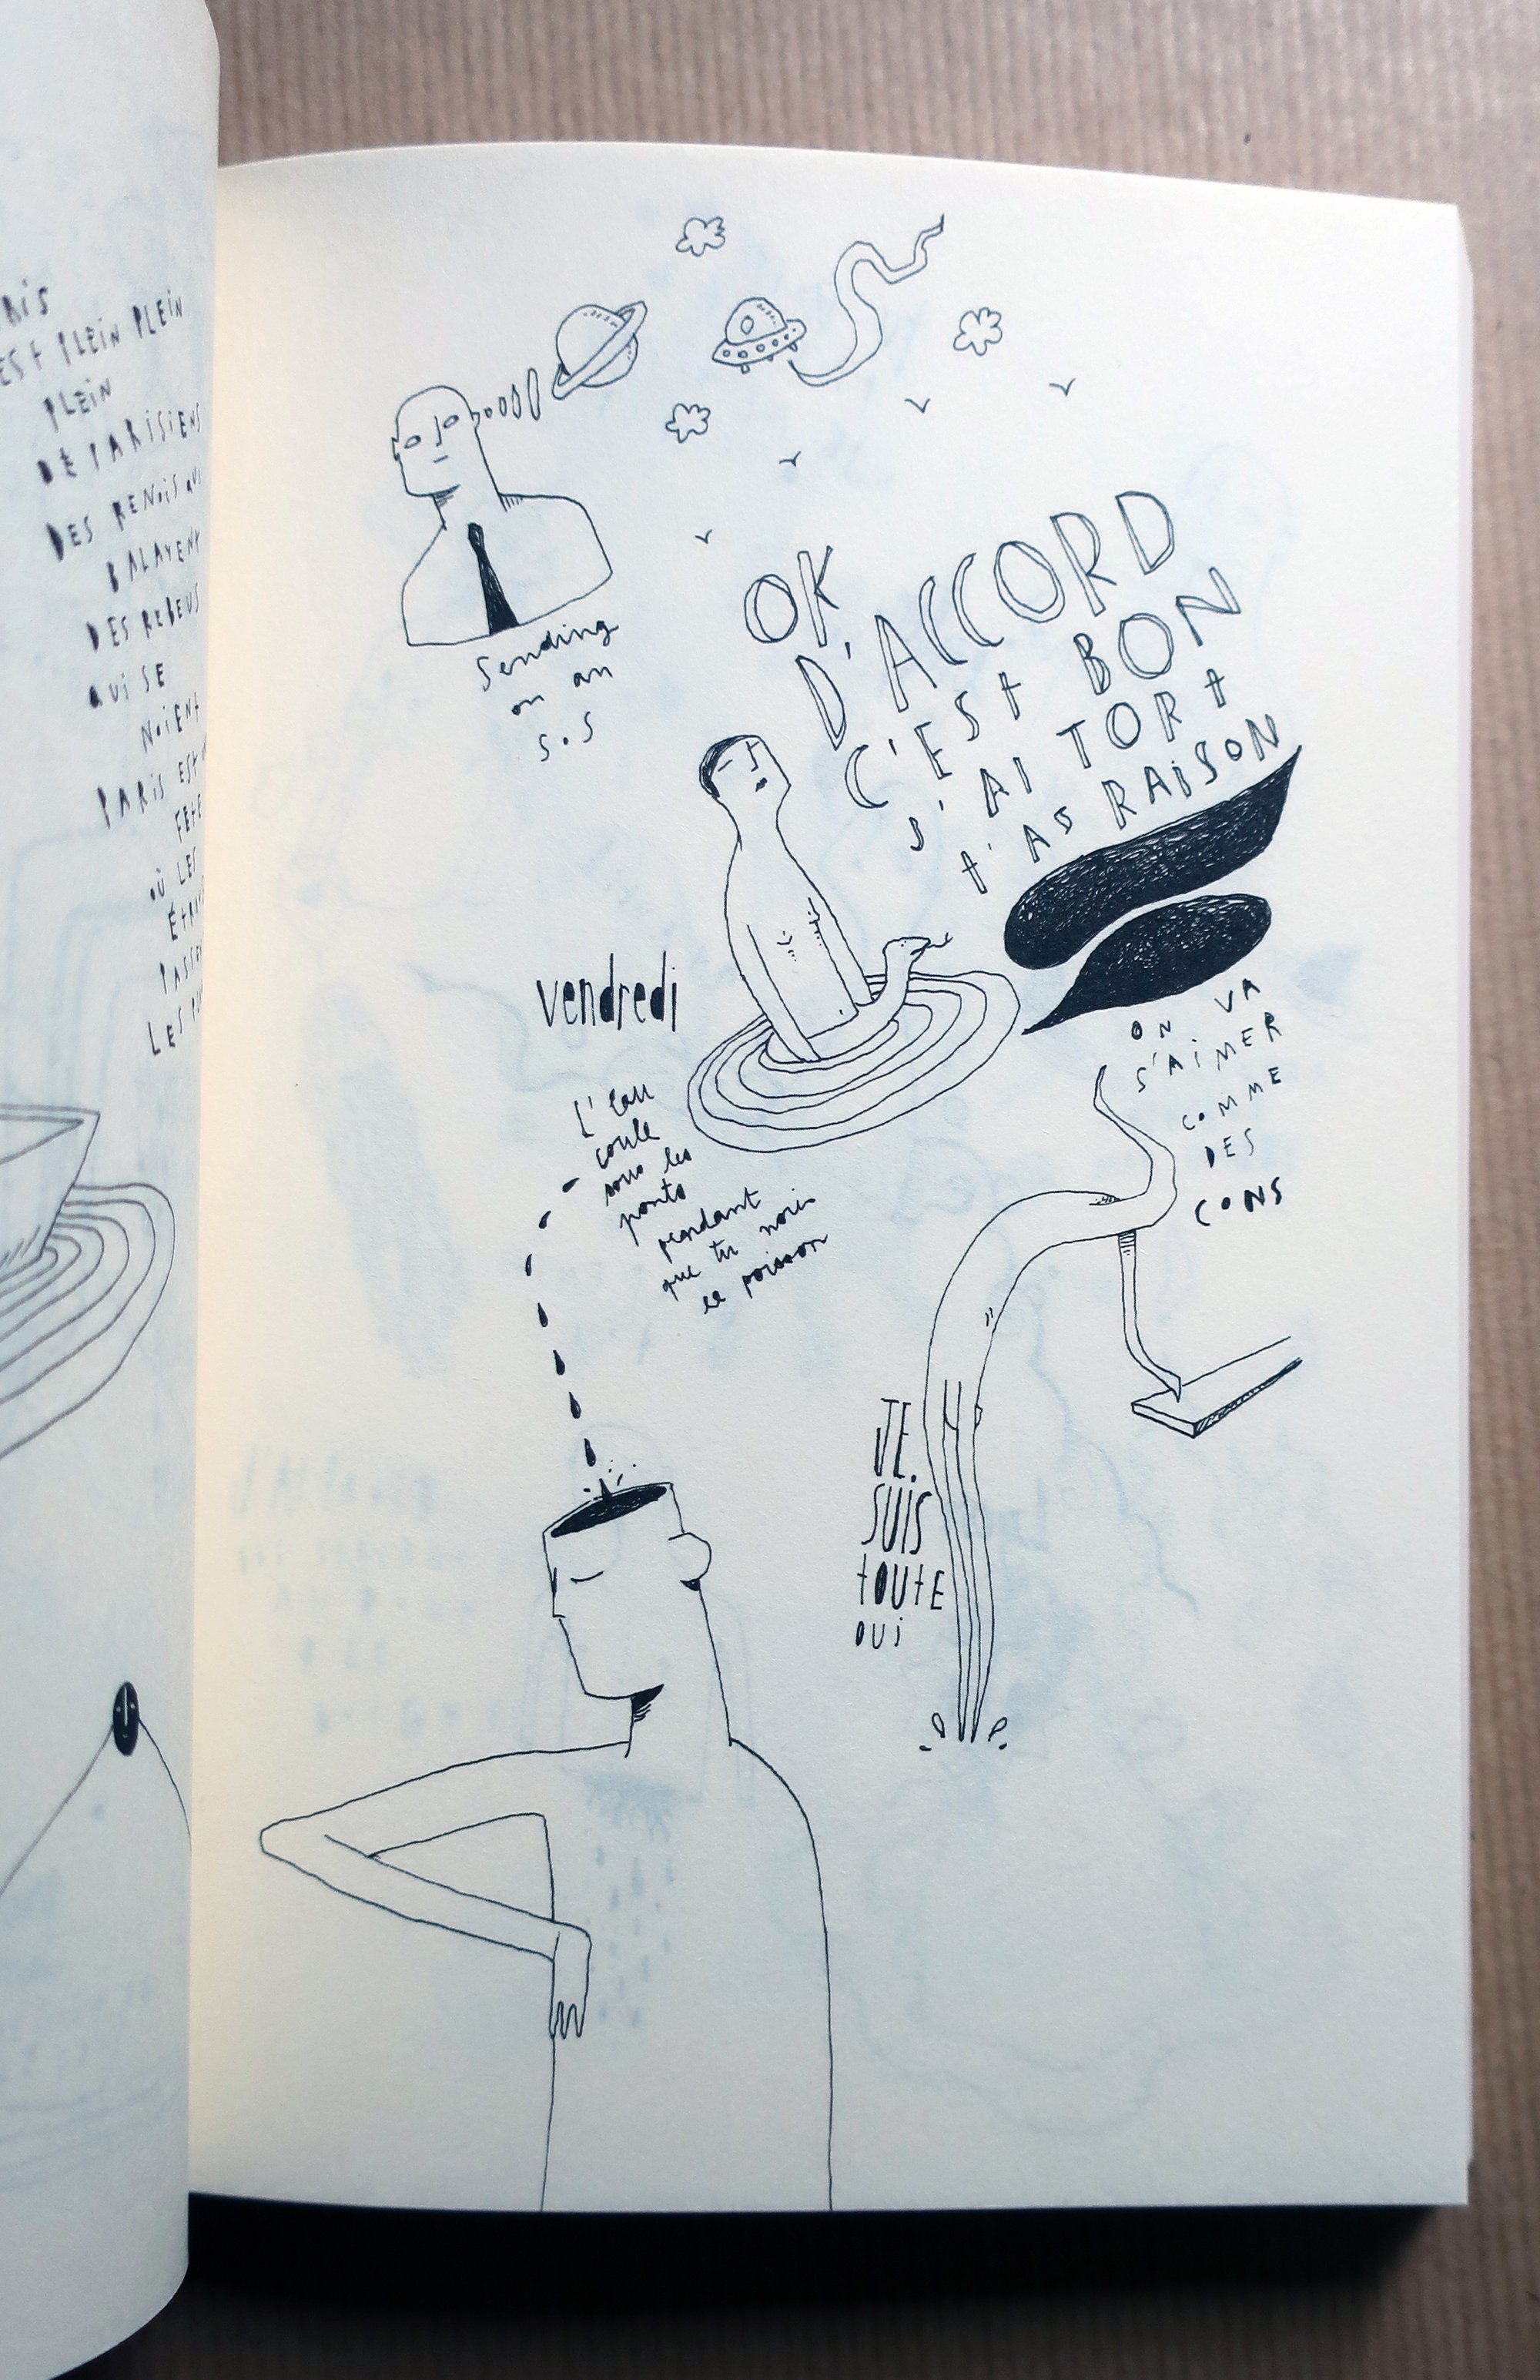 EST PLEIN PLEIN
PLEIN
DE PARISIENS
DES RENOIS QUI
BALAYENT
DES REBEUS
QUI SE
NOIENT
PARIS EST
FETE
OÙ LES
LES
Sending
on an
S.O.S
OK,
D'ACCORD
C'EST BON
J'AI TORT
T'AS RAISON
vendredi
L'eau
coule
sous les
ponts
pendant
que tu noies
le poisson
ON VA
S'AIMER
COMME
DES
CONS
JE.
SUIS
TOUTE
OUI